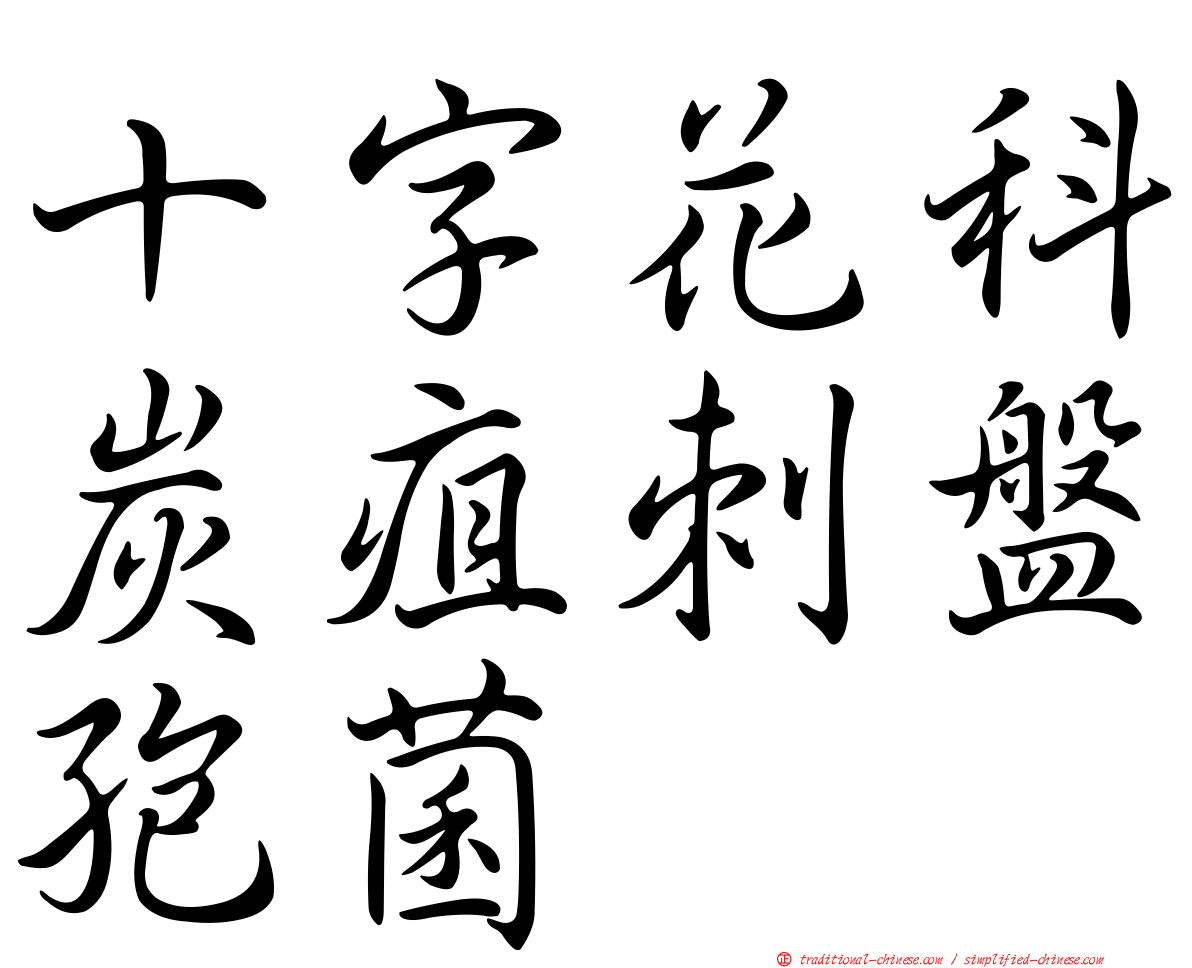 十字花科
炭疽刺盤
孢菌
㊣ traditional-chinese.com / simplified-chinese.com